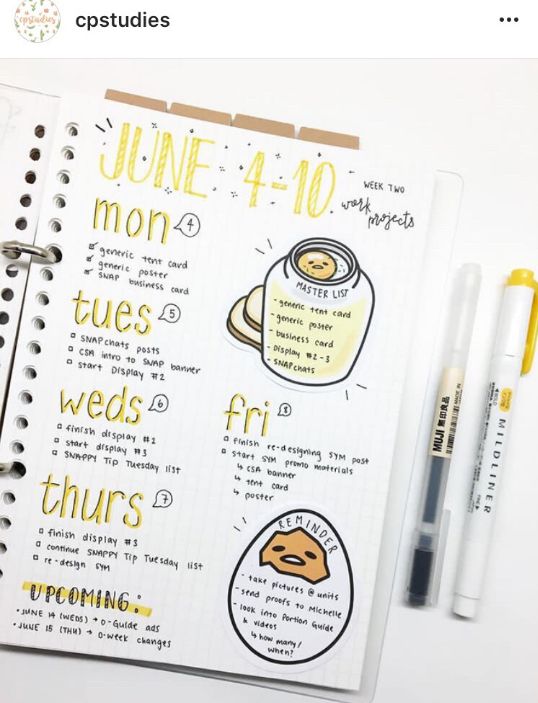 cpstudies
cpstudies
JUNE 4-10
WEEK TWO
work
projects
mon 4
generic tent card
generic poster
SNAP business card
tues 5
SNAPchats posts
CSA intro to SNAP banner
start Display #2
weds 6
finish display #2
start display #3
SNAPPY Tip Tuesday list
thurs 7
finish display #3
continue SNAPPY Tip Tuesday list
re-design SYM
UPCOMING:
• JUNE 14 (WEDS) → O-Guide ads
• JUNE 15 (THU) → O-week changes
MASTER LIST
- generic tent card
- generic poster
- business card
- Display #2-3
- SNAPchats
fri 8
finish re-designing SYM post
start SYM promo materials
↳ CSA banner
↳ tent card
↳ poster
REMINDER
- take pictures @ units
- send proofs to Michelle
- look into Portion Guide
& videos
↳ how many/
when?
MUJI 無印良品
MILDLINER